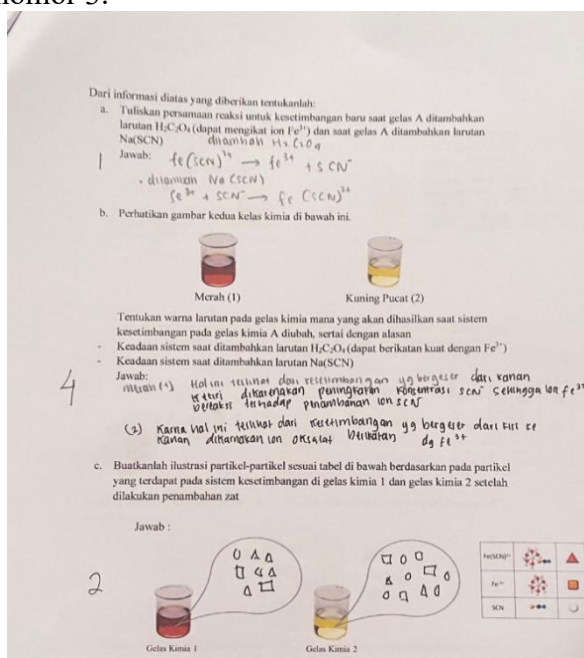 nomor 3.
Dari informasi diatas yang diberikan tentukanlah:
a. Tuliskan persamaan reaksi untuk kesetimbangan baru saat gelas A ditambahkan
larutan H₂C₂O₄ (dapat mengikat ion Fe³⁺) dan saat gelas A ditambahkan larutan
Na(SCN) ditambah H₂C₂O₄
1 Jawab: fe(SCN)²⁺ → fe³⁺ + SCN⁻
Na(SCN)
fe³⁺ + SCN⁻ → fe(SCN)²⁺
b. Perhatikan gambar kedua kelas kimia di bawah ini.
Merah (1) Kuning Pucat (2)
Tentukan warna larutan pada gelas kimia mana yang dihasilkan saat sistem
kesetimbangan pada gelas kimia A diubah, sertai dengan alasan
- Keadaan sistem saat ditambahkan larutan H₂C₂O₄ (dapat berikatan kuat dengan Fe³⁺)
- Keadaan sistem saat ditambahkan larutan Na(SCN)
Jawab:
4 merah (1) Hal ini terlihat dari kesetimbangan yg bergeser dari kanan
ke kiri dikarenakan peningkatan konsentrasi SCN⁻ sehingga ion fe³⁺
terhadap penambahan ion SCN⁻
(2) Karna hal ini terlihat dari kesetimbangan yg bergeser dari kiri ke
kanan dikarnakan ion oksalat berikatan dg fe³⁺
c. Buatkanlah ilustrasi partikel-partikel sesuai tabel di bawah berdasarkan pada partikel
yang terdapat pada sistem kesetimbangan di gelas kimia 1 dan gelas kimia 2 setelah
dilakukan penambahan zat
Jawab :
2
Fe(SCN)²⁺
Fe³⁺
SCN
Gelas Kimia 1 Gelas Kimia 2